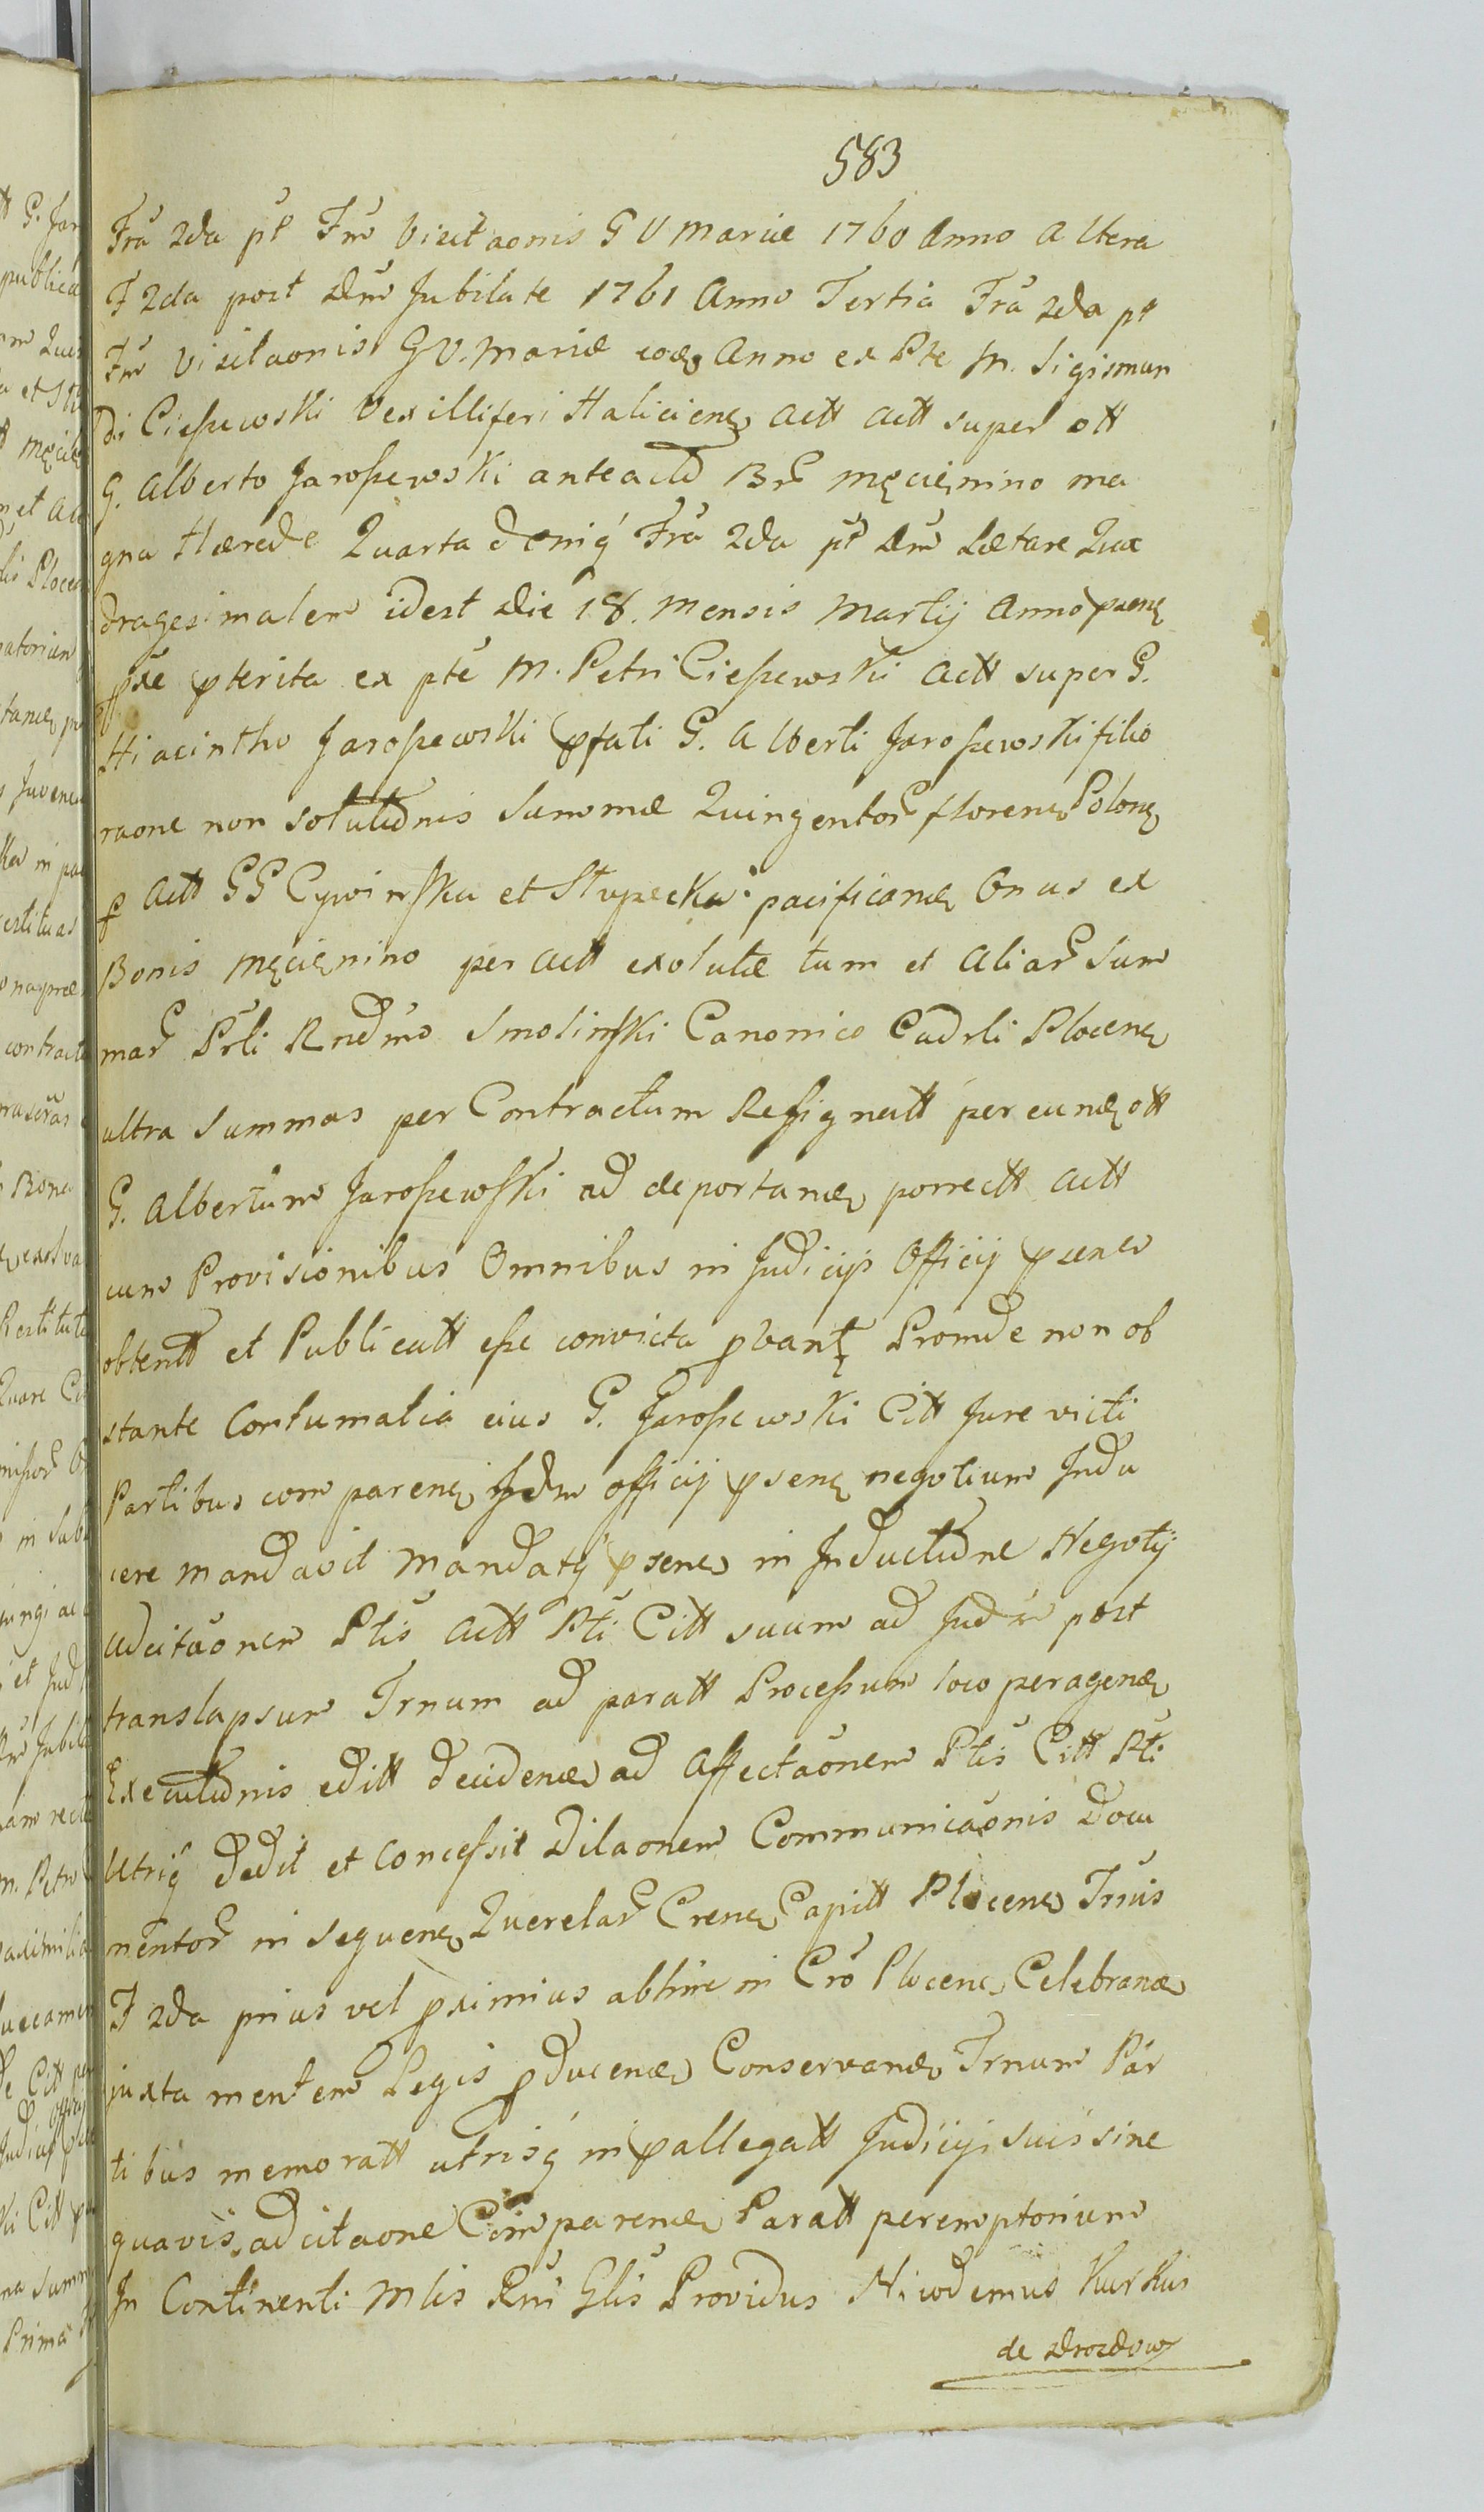 583
Fra 2da pt Fm Visitaonis G V Mariæ 1760 Anno Altera
F 2da post Dm Jubilate 1761 Anno Tertia Fra 2da pt
Fm Visitaonis G V. Mariæ eod Anno ex Pte M. Sigismun
di Cieszewski Vexilliferi Haliciens Actt actt super ott
G. Alberto Jaroszewski anteactt Br Męcienino ma
gna Hærede Quarta deniq Fra 2da pt Dm Lætare Qua
dragesimalem idest Die 18. Mensis Martij Anno psens
pxe pterita ex pte M. Petri Cieszewski Actt super G.
Hiacintho Jaroszewski pfati G. Alberti Jaroszewski filio
raone non solutionis Summæ Quingentor floren Polon
p Actt GG Cywinska et Stupecka pacificand Onus ex
Bonis Męcienino per Actt exolutæ tum et aliar Sum
mar Prli Rndmo Smolinski Canonico Cadrli Plocen
ultra Summas per Contractum Resignatt per eund ott
G. Albertum Jaroszewski ad deportand porrectt Actt
cum Provisionibus Omnibus in Judicijs Officij psens
obtentt et Publicatt esse convicta pbant Proinde non ob
stante Contumatia eius G. Jaroszewski Citt Jure victi
Partibus comparen Jdm officij psens negotium Indu
cere mandavit Mandatq psens in Inductione Negotij
Adcitaonem Ptis Actt Pti Citt suum ad Judm post
translapsum Trnum ad paratt Processum loco peragend
Executionis editt decidend ad Affectaonem Ptis Citt Pti
Utriq dedit et concessit Dilaonem Communicaonis Docu
mentor in sequen Querelar Cren Capitt Plocen Trnis
F 2da prius vel pximius abhinc in Cro Plocen Celebrand
juxta mentem Legis pducend Conservand Trnum Par
tibus memoratt utrisq in pallegatt Judicijs suis sine
quavis adcitaone Comparend Paratt peremptorium
In Continenti Mlis Rni Glis Providus Nicodemus Kurkus
de Drozdow